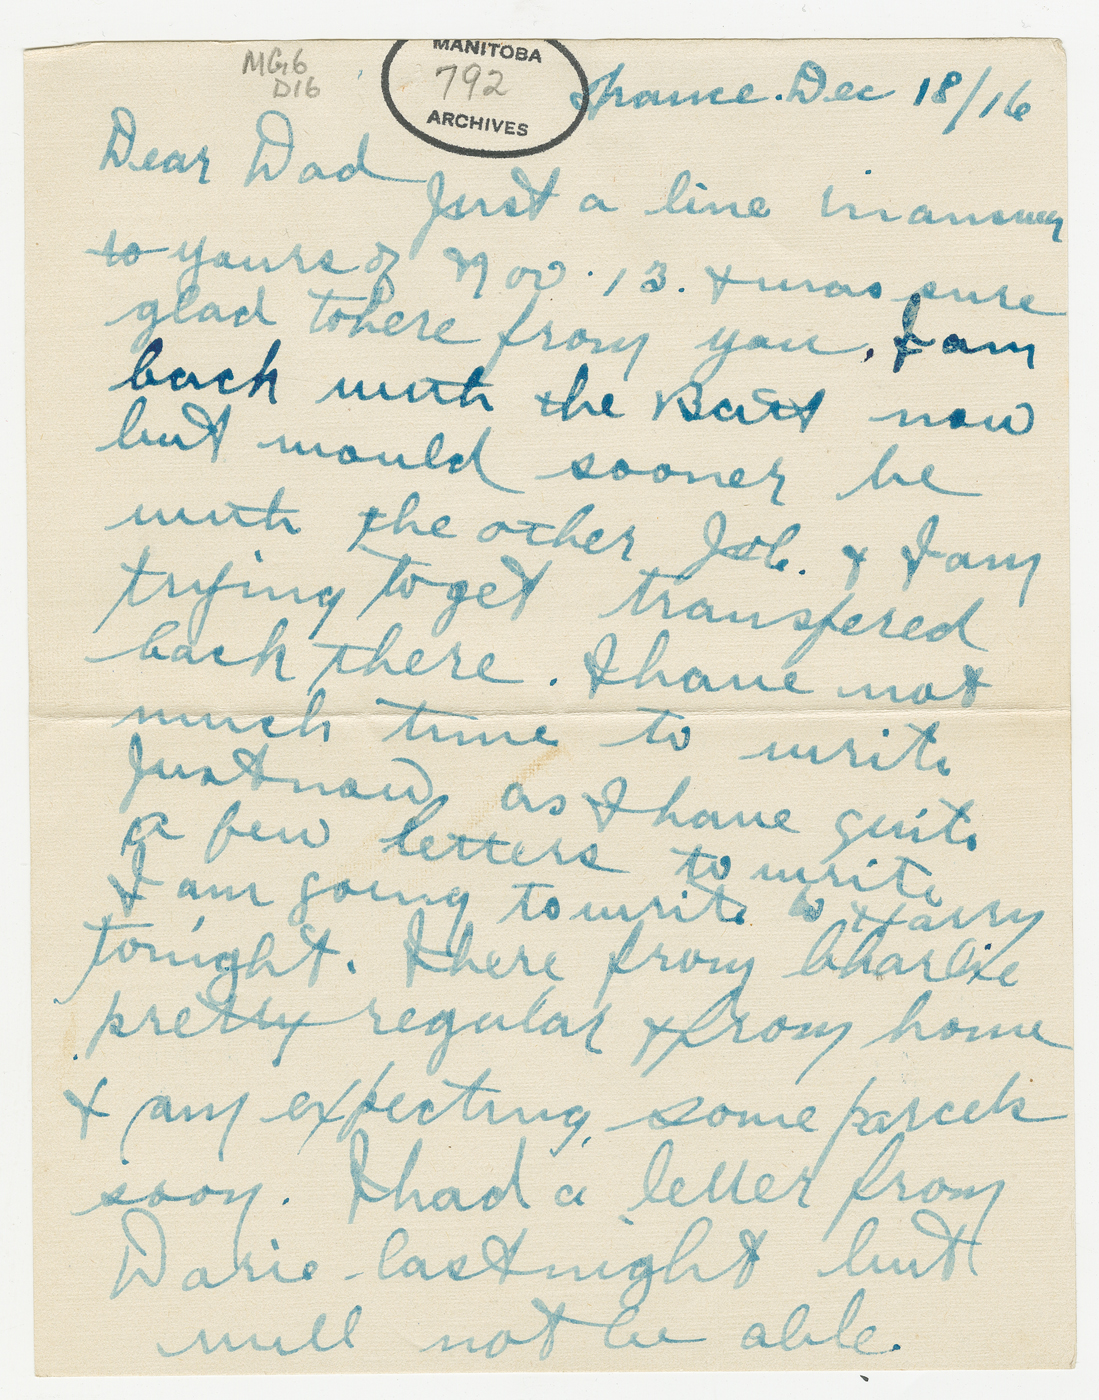 MG6
D16
MANITOBA
792
ARCHIVES
France. Dec 18/16
Dear Dad
Just a line in answer
to yours of Nov. 13. & was sure
glad to here from you. I am
back with the Batt now
but would sooner be
with the other Job. & I am
trying to get transfered
back there. I have not
much time to write
Just now as I have quite
a few letters to write
I am going to write to Harry
tonight. I here from Charlie
pretty regular & from home
& am expecting some parcels
soon. I had a letter from
Darie last night but
will not be able.